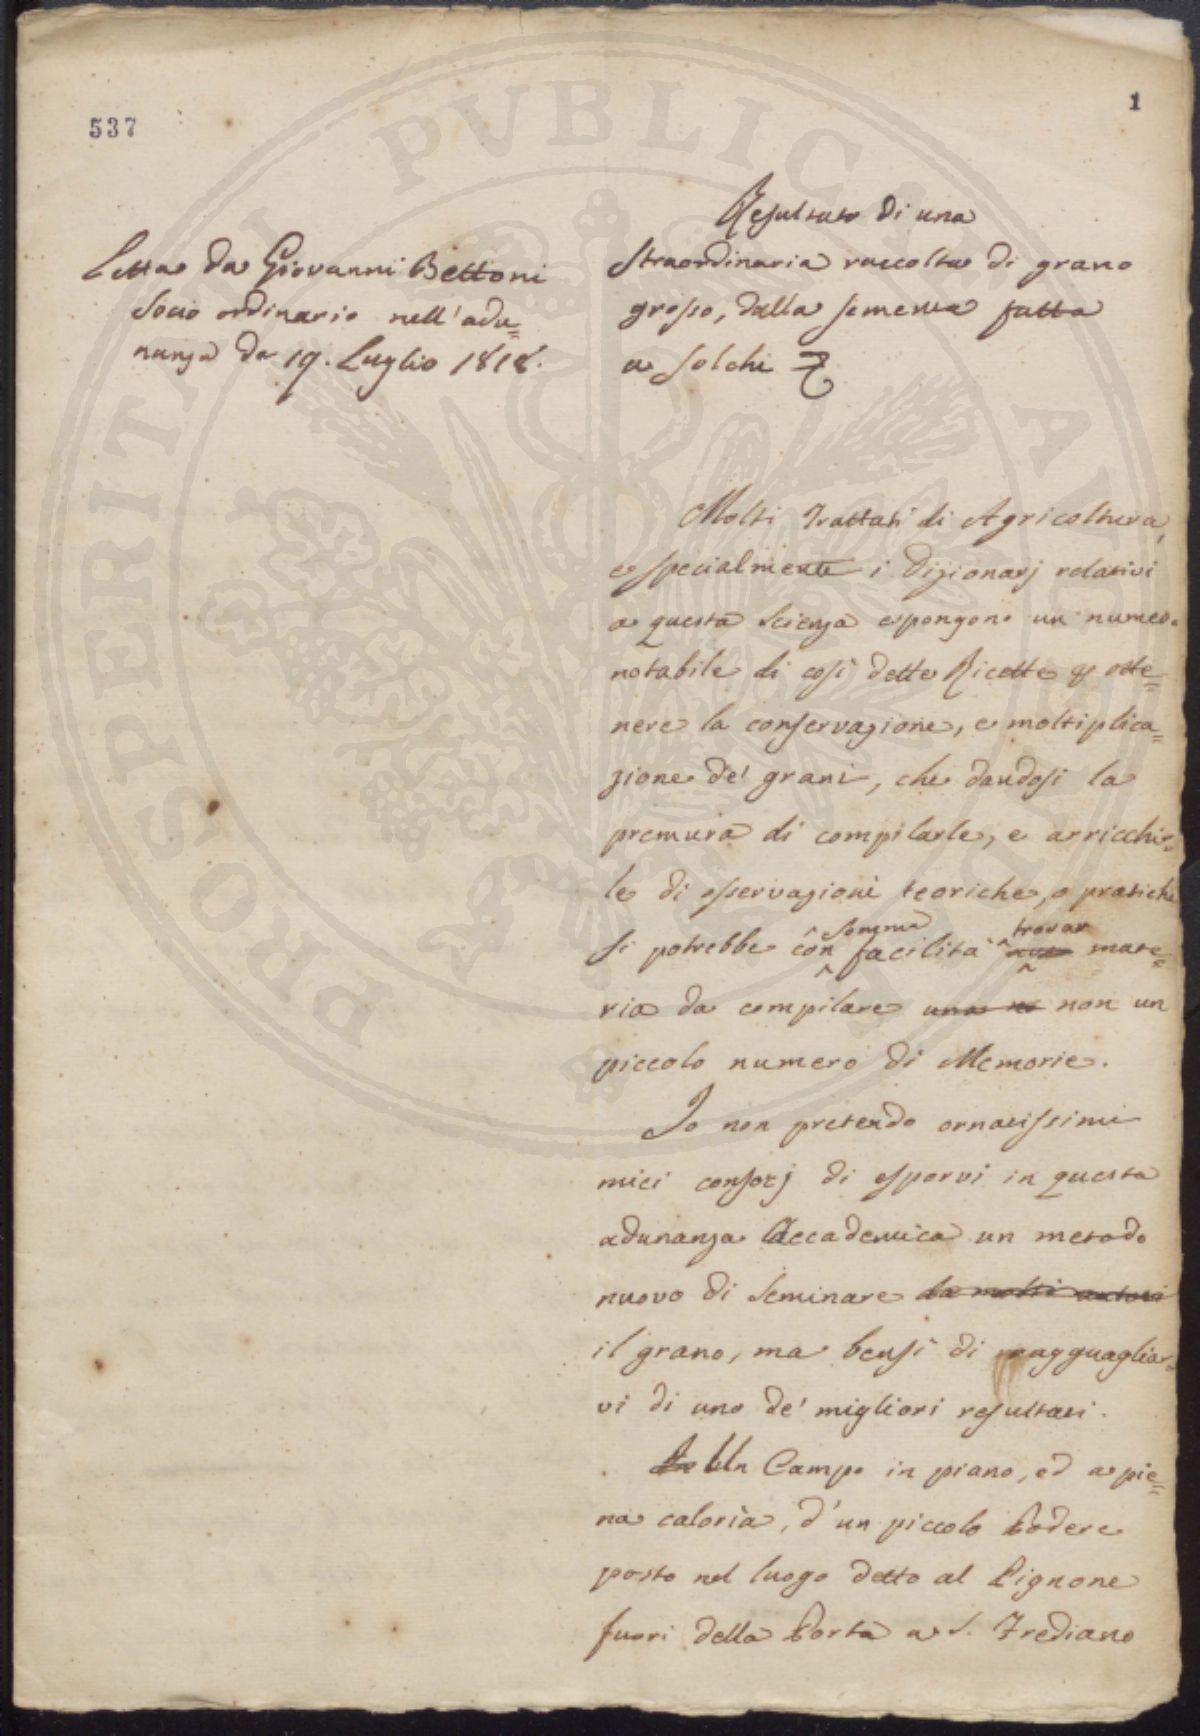 537
1
Letta da Giovanni Bettoni
Socio ordinario nell'adu=
nanza de 19. Luglio 1818.
Resultato di una
straordinaria raccolta di grano
grosso, dalla sementa fatta
a solchi
Molti Trattati di Agricoltura,
e specialmente i Dizionarj relativi
a questa scienza espongono un numero
notabile di così dette Ricette p otte=
nere la conservazione, e moltiplica=
zione de' grani, che dandosi la
premura di compilarle, e arricchir=
le di osservazioni teoriche, o pratiche
somma trovar
si potrebbe con facilità mate=
ria da compilare una ne non un
piccolo numero di Memorie.
Io non pretendo ornatissimi
miei consocj di esporvi in questa
adunanza Accademica un metodo
nuovo di seminare da molti autori
il grano, ma bensì di ragguagliar=
vi di uno de' migliori resultati.
Un Campo in piano, ed a pie=
na caloria, d'un piccolo Podere
posto nel luogo detto al Pignone
fuori della Porta a S. Frediano
PROSPERITATI PVBLICAE AVGENDAE